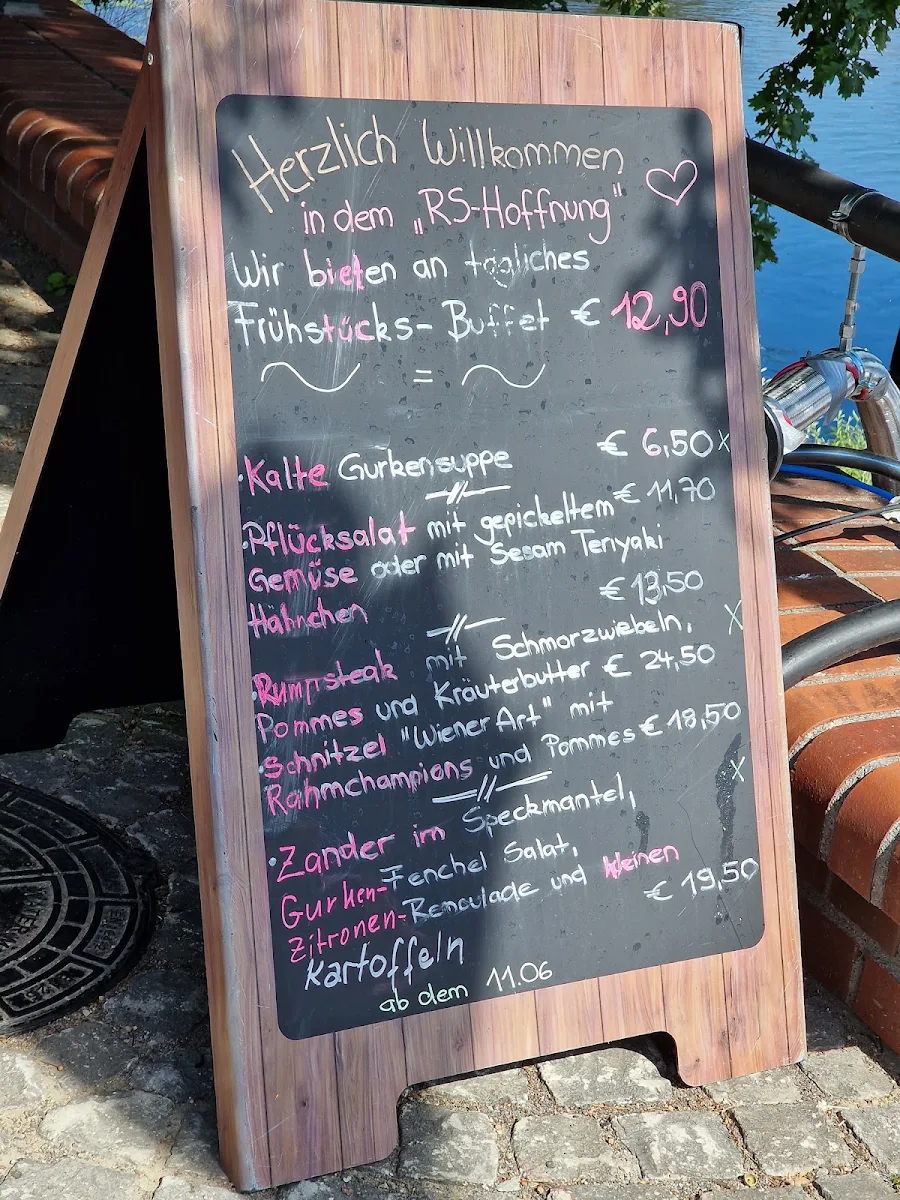 Herzlich Willkommen
in dem „RS-Hoffnung"
Wir bieten an tägliches
Frühstücks- Buffet € 12,90
=
· Kalte Gurkensuppe € 6,50 x
· Pflücksalat mit gepickeltem € 11,70
Gemüse oder mit Sesam Teriyaki
Hähnchen € 13,50
· Rumpsteak mit Schmorzwiebeln, x
Pommes und Kräuterbutter € 24,50
· Schnitzel "Wiener Art" mit
Rahmchampions und Pommes € 18,50
x
· Zander im Speckmantel,
Gurken-Fenchel Salat,
Zitronen-Remoulade und kleinen
Kartoffeln € 19,50
ab dem 11.06